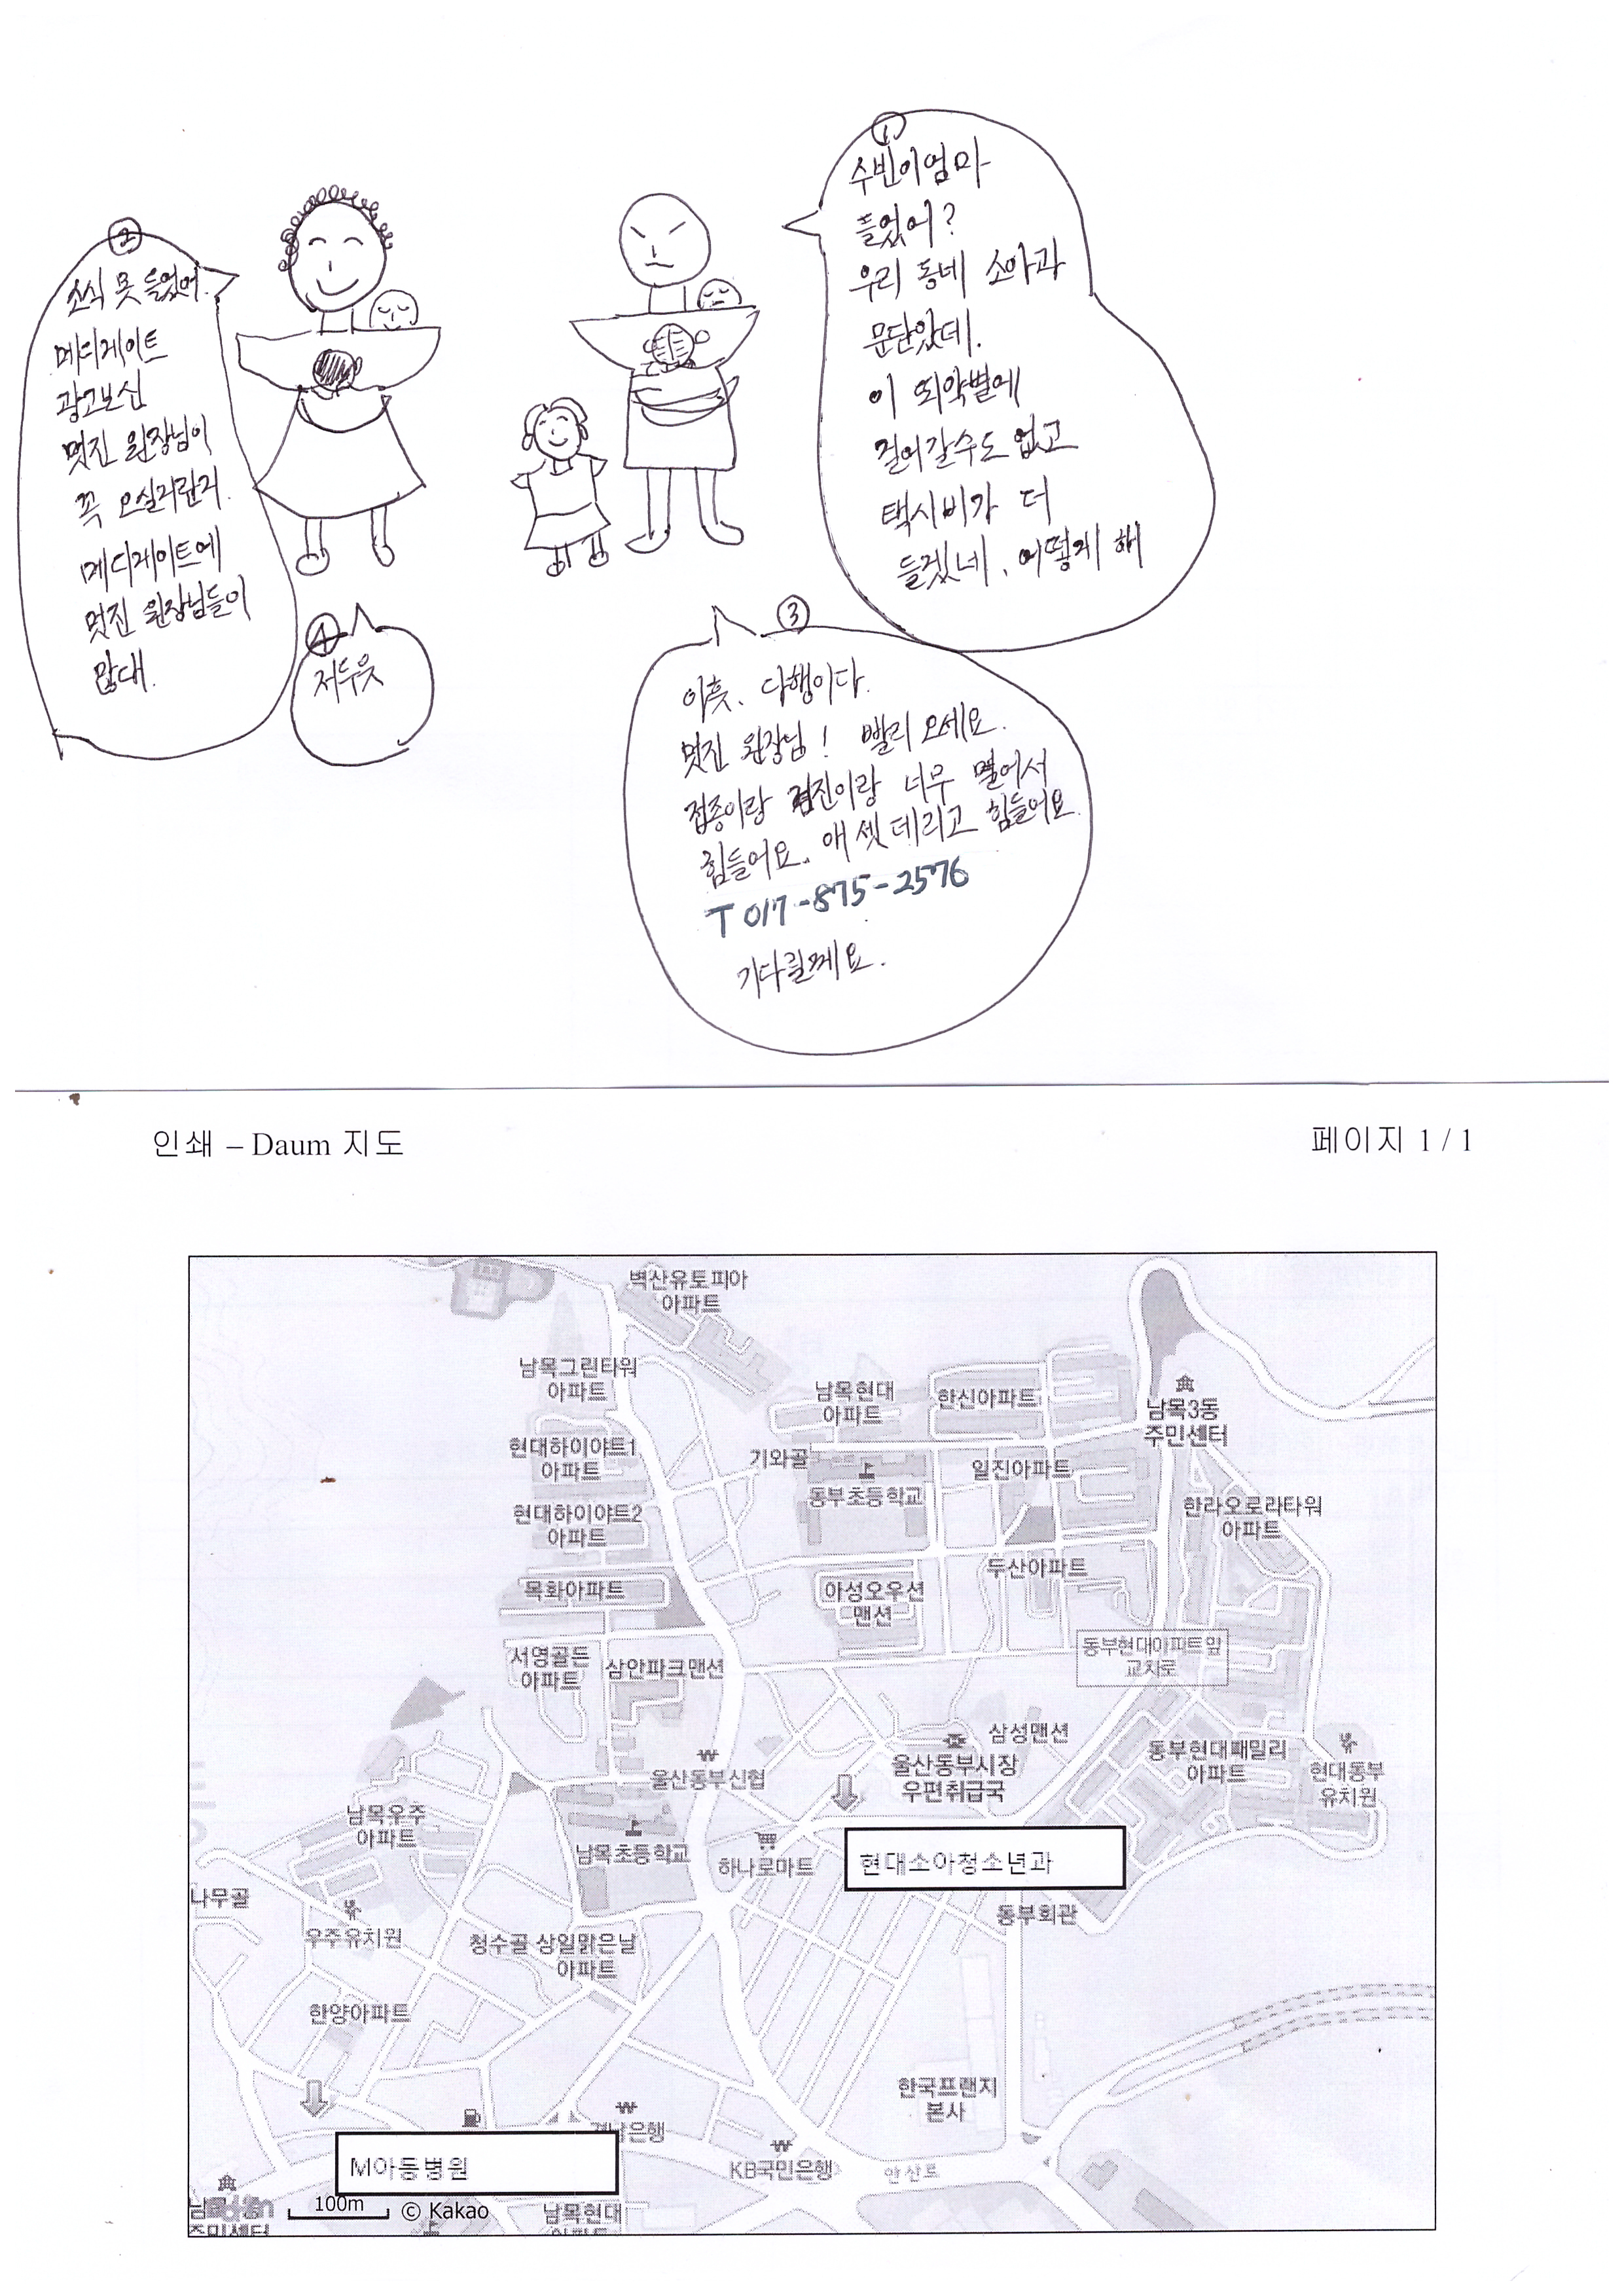 ①
수빈이엄마
들었어?
우리 동네 소아과
문닫았데.
이 뙤약볕에
걸어갈수도 없고
택시비가 더
들겠네. 어떻게 해
②
소식 못 들었어.
메디게이트
광고보신
멋진 원장님이
꼭 오실거란거.
메디게이트에
멋진 원장님들이
많대.
③
이흣. 다행이다.
멋진 원장님! 빨리 오세요.
접종이랑 검진이랑 너무 멀어서
힘들어요. 애 셋 데리고 힘들어요.
T 017-875-2576
기다릴께요.
④
저두읏
인쇄 – Daum 지도
페이지 1 / 1
벽산유토피아
아파트
남목그린타워
아파트
남목현대
아파트
한신아파트
남목3동
주민센터
현대하이야트1
아파트
기와골
일진아파트
동부초등학교
현대하이야트2
아파트
한라오로라타워
아파트
목화아파트
아성오우션
맨션
두산아파트
서영골든
아파트
삼안파크맨션
동부현대아파트앞
교차로
삼성맨션
울산동부신협
울산동부시장
우편취급국
동부현대패밀리
아파트
현대동부
유치원
남목우주
아파트
남목초등학교
하나로마트
현대소아청소년과
나무골
우주유치원
동부회관
청수골
상일맑은날
아파트
한양아파트
한국프랜지
본사
경남은행
M아동병원
KB국민은행
안산로
주민센터
100m
© Kakao
남목현대
아파트